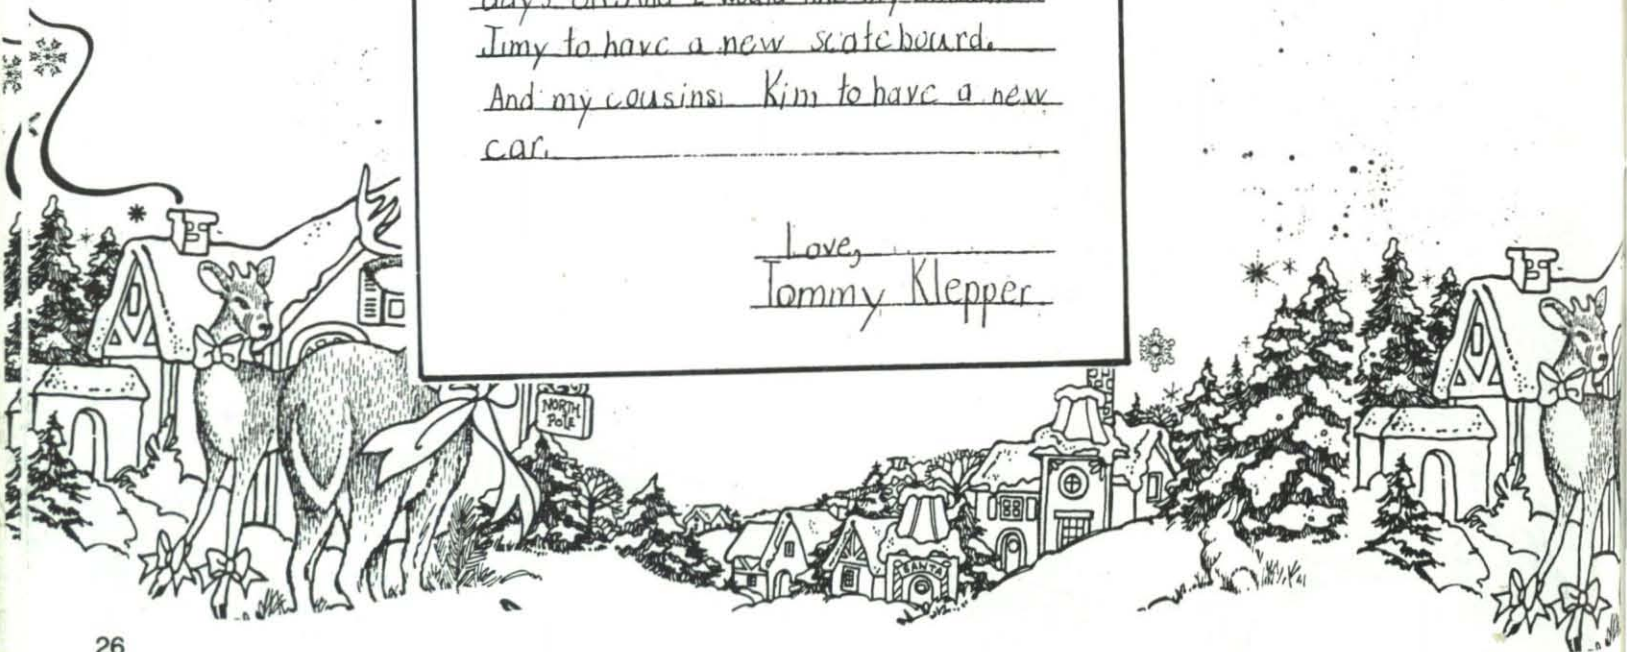 Jimy to have a new scatebourd.
And my cousins Kim to have a new
car.
Love,
Tommy Klepper
NORTH
POLE
SANTA
26